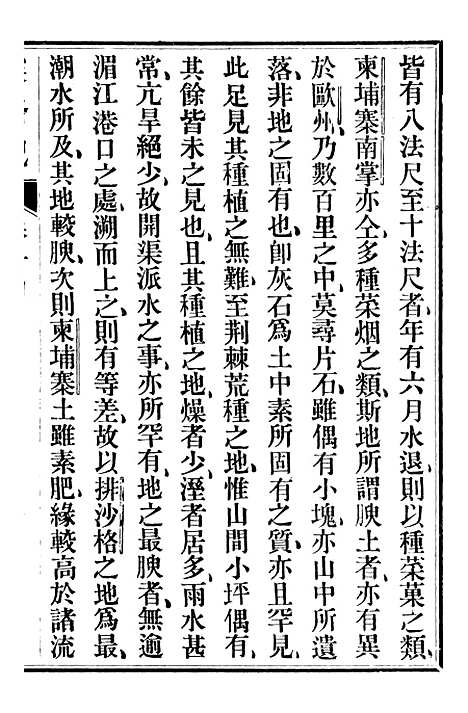 皆有八法尺至十法尺者年有六月水退則以種菜菓之類
柬埔寨南掌亦仝多種菜烟之類斯地所謂腴土者亦有異
於歐州乃數百里之中莫尋片石雖偶有小塊亦山中所遺
落非地之固有也卽灰石爲土中素所固有之質亦且罕見
此足見其種植之無難至荆棘荒種之地惟山間小坪偶有
其餘皆未之見也且其種植之地燥者少溼者居多雨水甚
常亢旱絕少故開渠派水之事亦所罕有地之最腴者無逾
湄江港口之處溯而上之則有等差故以排沙格之地爲最
潮水所及其地較腴次則柬埔寨土雖素肥緣較高於諸流